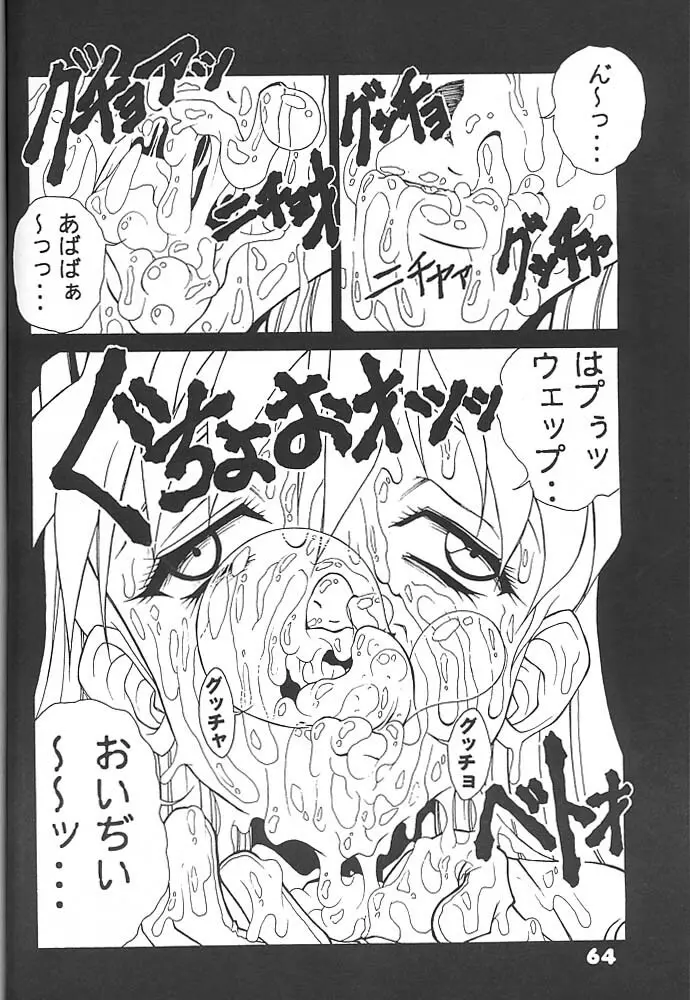 ん゛～っ・・・
グッチョ
グッチャ
ニチャァ
グチョアッ
ニチョオ
あばばぁ
～っっ・・・
はプゥッ
ウェップ・・
ぐちょおオッッ
グッチャ
グッチョ
ベトォ
おいぢぃ
～～ッ・・・
64